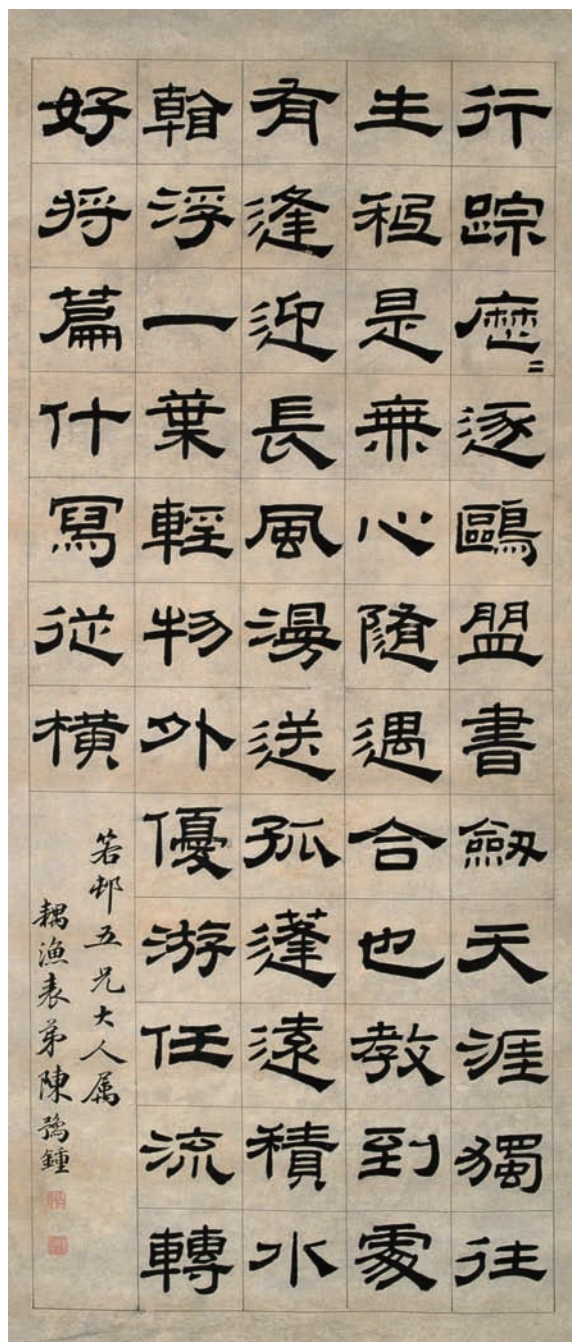 行踪歷〻逐鷗盟書劔天涯獨往
生秖是無心隨遇合也教到處
有逢迎長風漫送孤蓬遠積水
翰浮一葉輕物外優游任流轉
好將篇什寫從橫
箬邨五兄大人属
耦漁表弟陳豫鍾